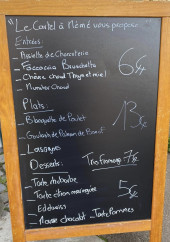 "Le Cartel à Mémé vous propose
Entrées:
_ Assiette de Charcuterie
_ Foccaccia Bruschetta
_ Chèvre chaud Thym et miel
_ Munster Chaud
6€
Plats:
_ Blanquette de Poulet
_ Goulash de Paleron de Boeuf
_ Lasagne
13€
Desserts: Trio Fromage 7€
_ Tarte rhubarbe
_ Tarte citron meringuée
5€
_ Mousse chocolat _ Tarte Pommes